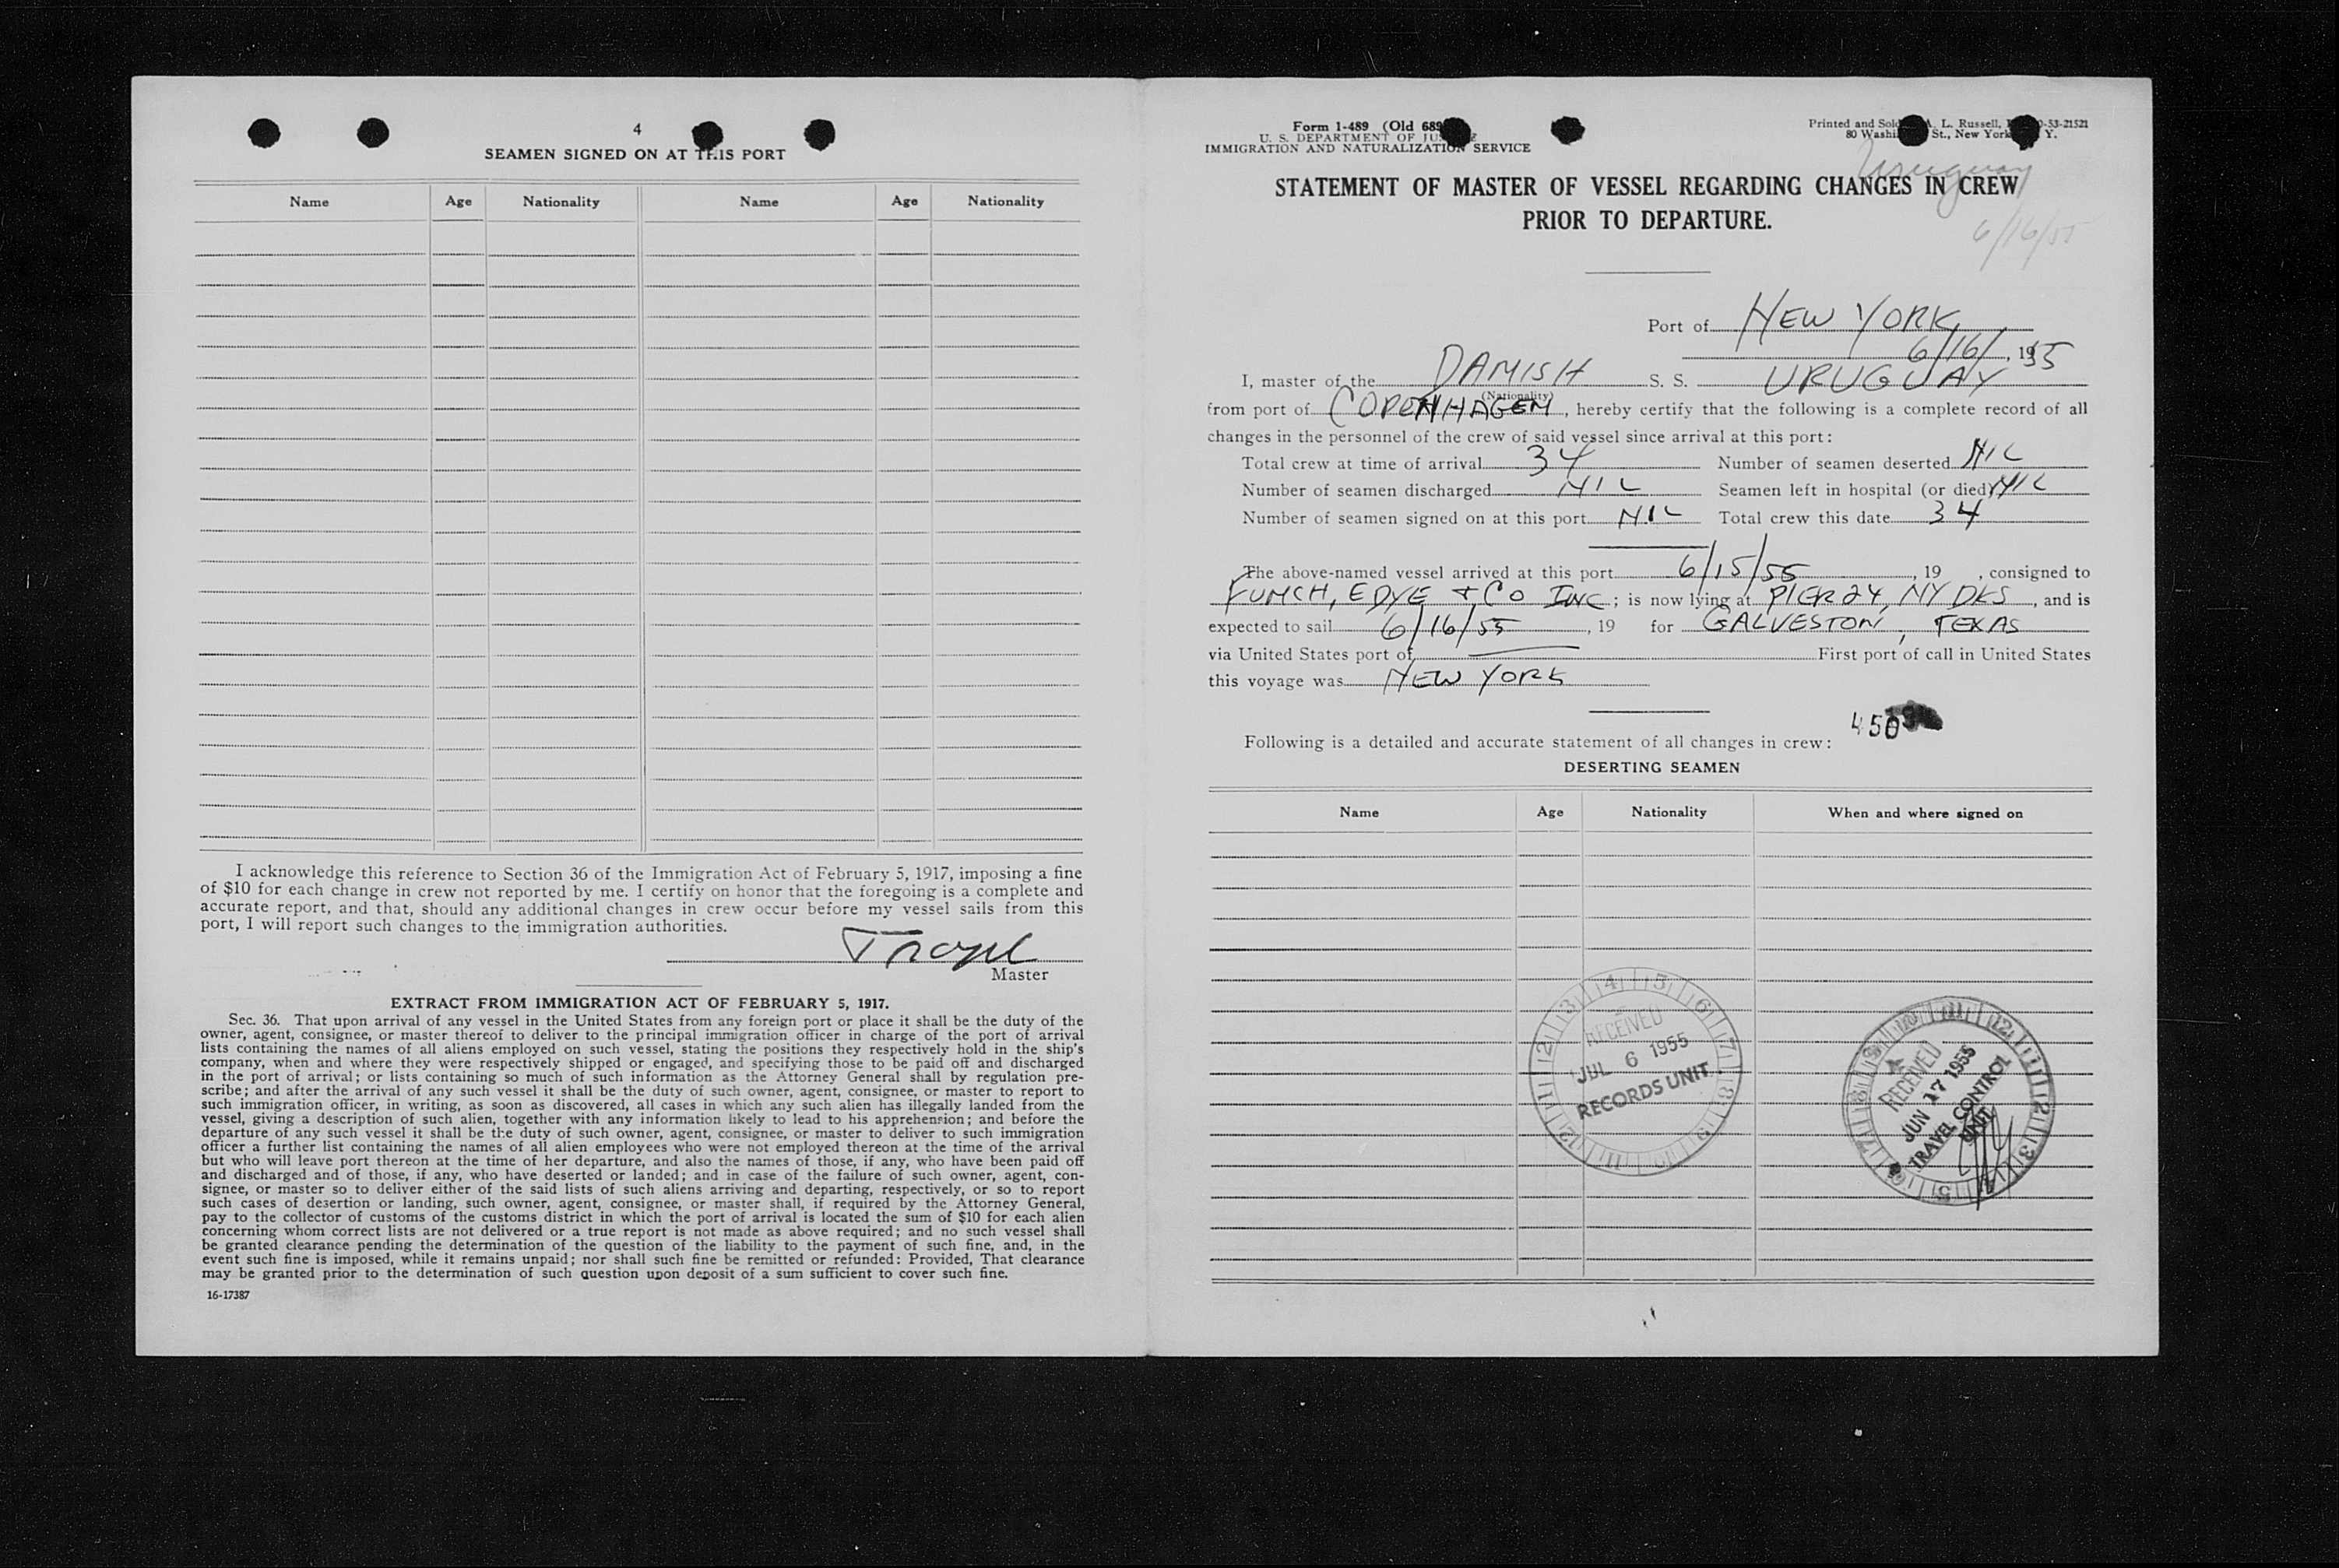 4
SEAMEN SIGNED ON AT THIS PORT
Name Age Nationality Name Age Nationality
I acknowledge this reference to Section 36 of the Immigration Act of February 5, 1917, imposing a fine
of $10 for each change in crew not reported by me. I certify on honor that the foregoing is a complete and
accurate report, and that, should any additional changes in crew occur before my vessel sails from this
port, I will report such changes to the immigration authorities.
Master
EXTRACT FROM IMMIGRATION ACT OF FEBRUARY 5, 1917.
Sec. 36. That upon arrival of any vessel in the United States from any foreign port or place it shall be the duty of the
owner, agent, consignee, or master thereof to deliver to the principal immigration officer in charge of the port of arrival
lists containing the names of all aliens employed on such vessel, stating the positions they respectively hold in the ship's
company, when and where they were respectively shipped or engaged, and specifying those to be paid off and discharged
in the port of arrival; or lists containing so much of such information as the Attorney General shall by regulation pre-
scribe; and after the arrival of any such vessel it shall be the duty of such owner, agent, consignee, or master to report to
such immigration officer, in writing, as soon as discovered, all cases in which any such alien has illegally landed from the
vessel, giving a description of such alien, together with any information likely to lead to his apprehension; and before the
departure of any such vessel it shall be the duty of such owner, agent, consignee, or master to deliver to such immigration
officer a further list containing the names of all alien employees who were not employed thereon at the time of the arrival
but who will leave port thereon at the time of her departure, and also the names of those, if any, who have been paid off
and discharged and of those, if any, who have deserted or landed; and in case of the failure of such owner, agent, con-
signee, or master so to deliver either of the said lists of such aliens arriving and departing, respectively, or so to report
such cases of desertion or landing, such owner, agent, consignee, or master shall, if required by the Attorney General,
pay to the collector of customs of the customs district in which the port of arrival is located the sum of $10 for each alien
concerning whom correct lists are not delivered or a true report is not made as above required; and no such vessel shall
be granted clearance pending the determination of the question of the liability to the payment of such fine, and, in the
event such fine is imposed, while it remains unpaid; nor shall such fine be remitted or refunded: Provided, That clearance
may be granted prior to the determination of such question upon deposit of a sum sufficient to cover such fine.
16-17387
Form 1-489 (Old 689
U. S. DEPARTMENT OF JUSTICE
IMMIGRATION AND NATURALIZATION SERVICE
Printed and Sold L. Russell, 0-53-21521
80 Washi St., New York Y.
Uruguay
6/16/55
STATEMENT OF MASTER OF VESSEL REGARDING CHANGES IN CREW
PRIOR TO DEPARTURE.
Port of NEW YORK
6/16/, 1955
I, master of the DANISH S. S. URUGUAY
(Nationality)
from port of COPENHAGEN, hereby certify that the following is a complete record of all
changes in the personnel of the crew of said vessel since arrival at this port:
Total crew at time of arrival 34 Number of seamen deserted NIL
Number of seamen discharged NIL Seamen left in hospital (or died) NIL
Number of seamen signed on at this port NIL Total crew this date 34
The above-named vessel arrived at this port 6/15/55, 19 , consigned to
FUNCH, EDYE + CO INC; is now lying at PIER 24, NY DKS, and is
expected to sail 6/16/55, 19 for GALVESTON, TEXAS
via United States port of First port of call in United States
this voyage was NEW YORK
450
Following is a detailed and accurate statement of all changes in crew:
DESERTING SEAMEN
Name Age Nationality When and where signed on
RECEIVED
JUL 6 1955
RECORDS UNIT
RECEIVED
JUN 17 1955
TRAVEL CONTROL
UNIT